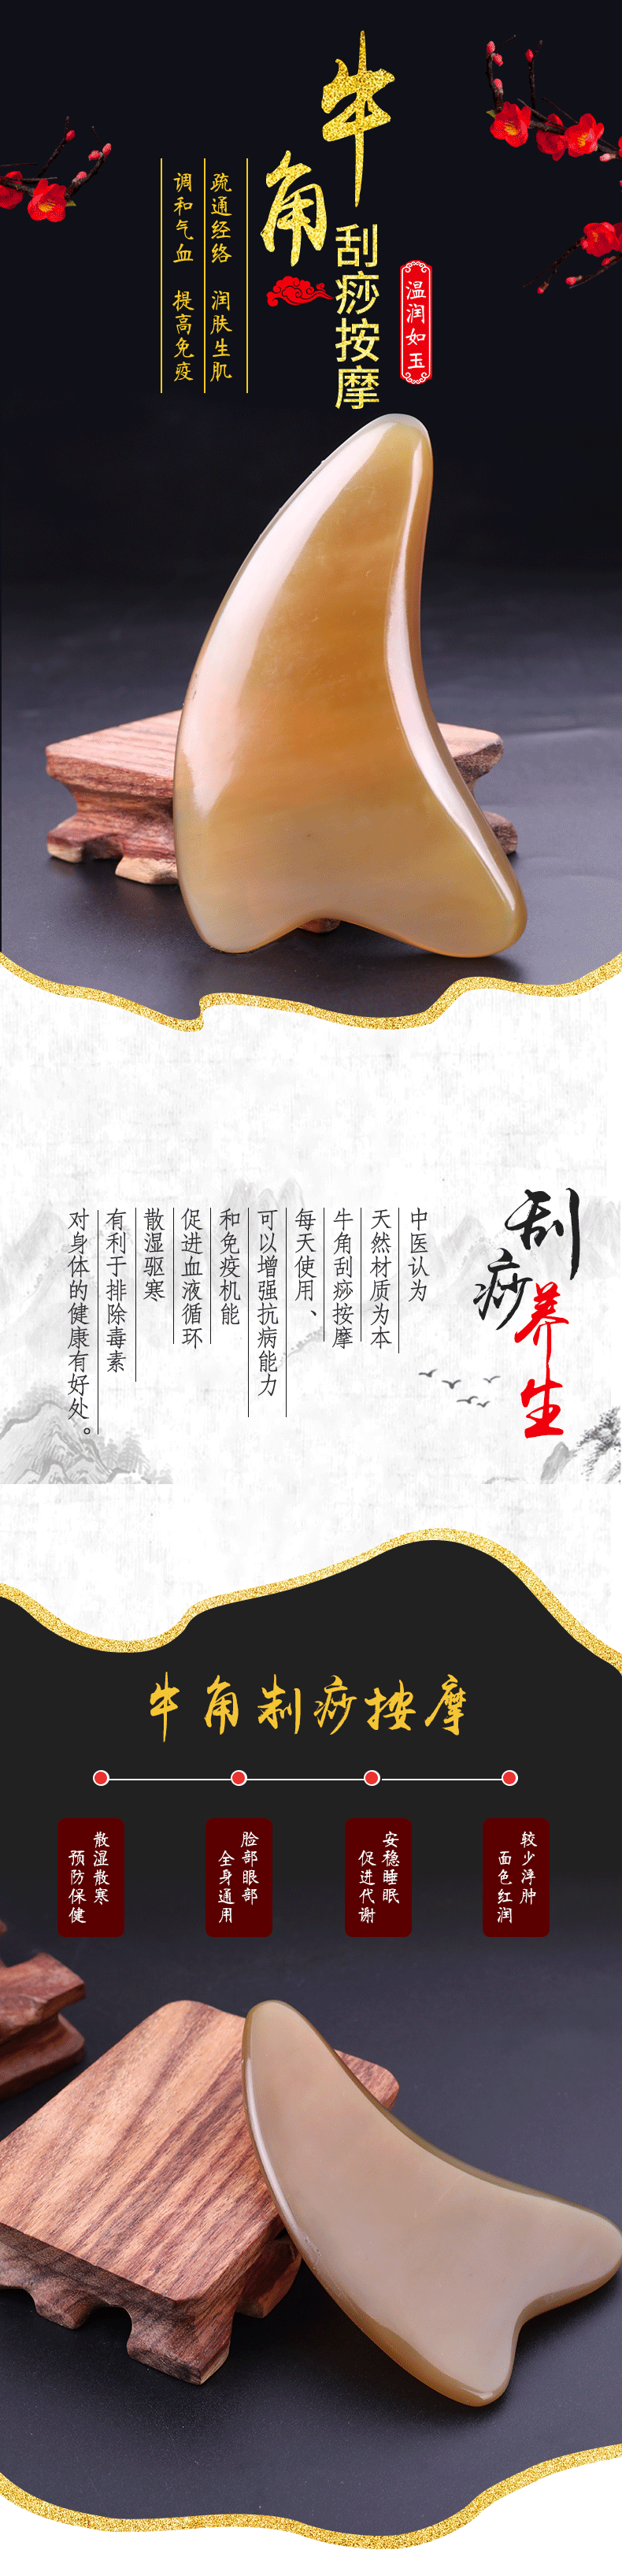 牛角
刮痧按摩
温润如玉
疏通经络 润肤生肌
调和气血 提高免疫
刮痧养生
中医认为
天然材质为本
牛角刮痧按摩
每天使用、
可以增强抗病能力
和免疫机能
促进血液循环
散湿驱寒
有利于排除毒素
对身体的健康有好处。
牛角刮痧按摩
散湿散寒
预防保健
脸部眼部
全身通用
安稳睡眠
促进代谢
较少浮肿
面色红润